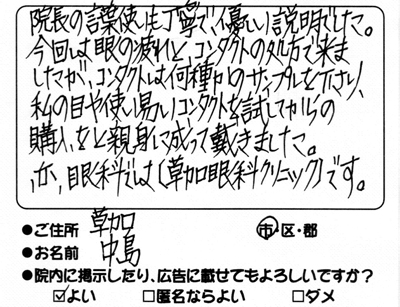 院長の言葉使いは丁寧で、優しい説明でした。
今回しは眼の疲れと、コンタクトの処方で来ま
したが、コンタクトは何種かのサンプルを下さり、
私の目や使い易いコンタクトを試してからの
購入をと親身に成って戴きました。
、か、眼科では〔草加眼科クリニック〕です。
●ご住所 草加 市・区・郡
●お名前 中島
●院内に掲示したり、広告に載せてもよろしいですか?
☑よい □匿名ならよい □ダメ